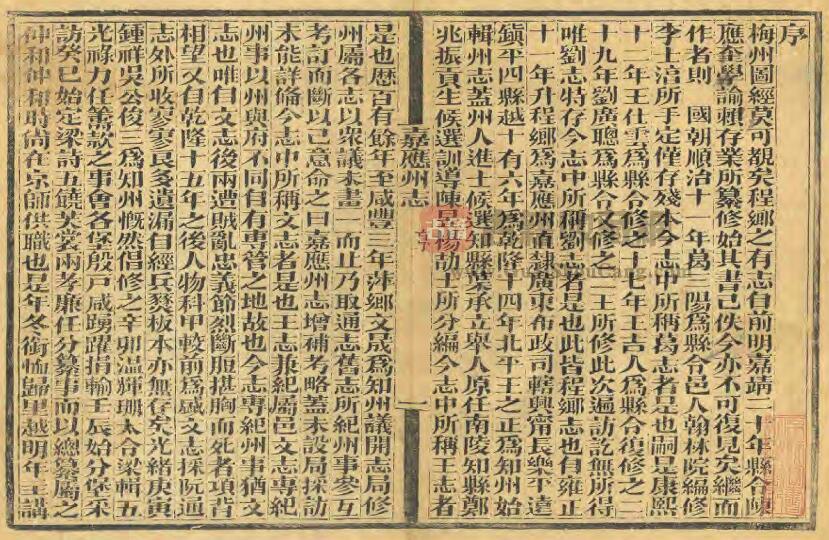 序
梅州圖經莫可覩矣程鄉之有志自前明嘉靖二十年縣令陳
應奎學諭賴存業所纂修始其書已佚今亦不可復見矣繼而
作者則　國朝順治十一年葛三陽爲縣令邑人翰林院編修
李士淳所手定僅存殘本今志中所稱葛志者是也嗣是康熙
十一年王仕雲爲縣令修之十七年王吉人爲縣令復修之二
十九年劉廣聰爲縣令又修之二王所修此次遍訪訖無所得
唯劉志特存今志中所稱劉志者是也此皆程鄉志也自雍正
十一年升程鄉爲嘉應州直隸廣東布政司轄興甯長樂平遠
鎭平四縣越十有六年爲乾隆十四年北平王之正爲知州始
輯州志蓋州人進士候選知縣葉承立舉人原任南陵知縣鄭
兆振貢生候選訓導陳昌楊劼士所分編今志中所稱王志者
嘉應州志
序
一
是也歷百有餘年至咸豐三年萍鄉文晟爲知州議開志局修
州屬各志以衆議未畫一而止乃取通志舊志所紀州事參互
考訂而斷以己意命之曰嘉應州志增補考略蓋未設局採訪
未能詳備今志中所稱文志者是也王志兼紀屬邑文志專紀
州事以州與府不同自有專管之地故也今志專紀州事猶文
志也唯自文志後兩遭賊亂忠義節烈斷脰揕胸而死者項背
相望又自乾隆十五年之後人物科甲較前爲盛文志採阮通
志外所收寥寥艮多遺漏自經兵燹板本亦無存矣光緒庚寅
鍾祥吳公俊三爲知州慨然倡修之辛卯溫輝珊太令梁輯五
光祿力任籌款之事會各保殷戸咸踴躍捐輸壬辰始分堡采
訪癸巳始定梁詩五饒芙裳兩孝廉任分纂事而以總纂屬之
仲和仲和時尚在京師供職也是年冬銜恤歸里越明年主講